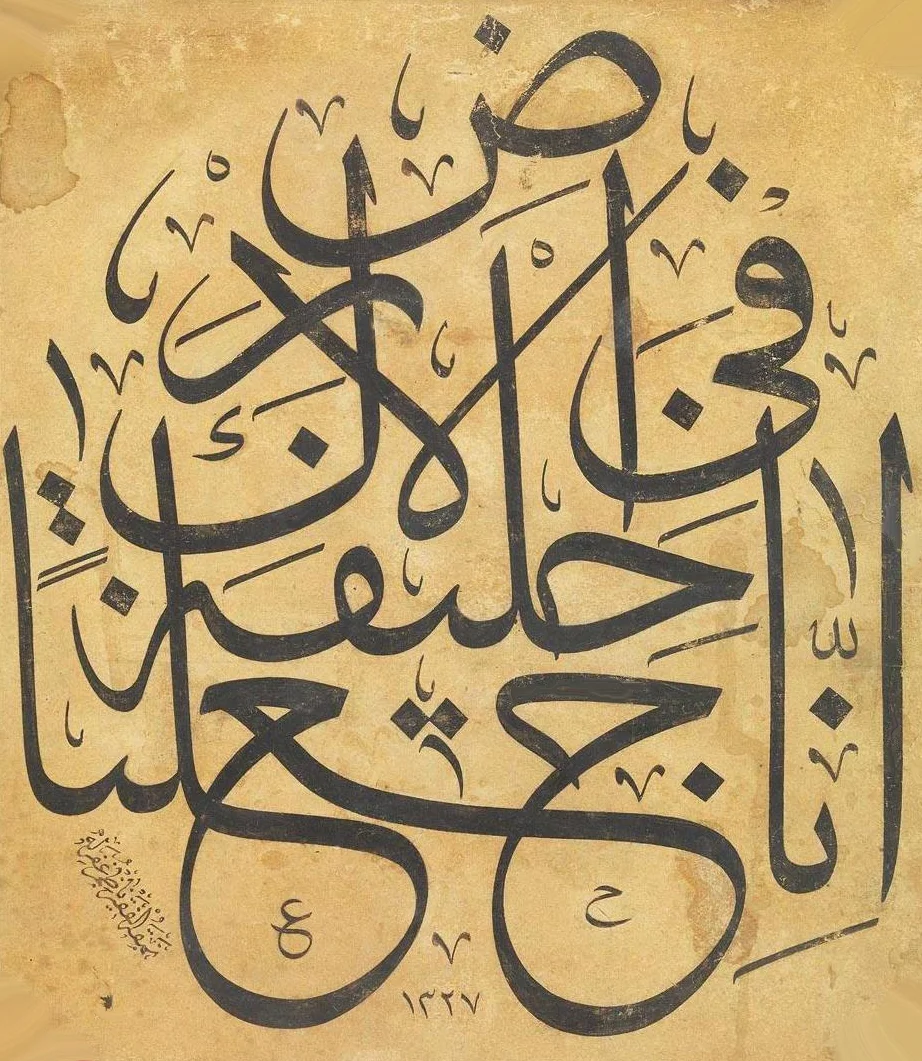 إنا جعلناك خليفة في الأرض
١٣٢٧